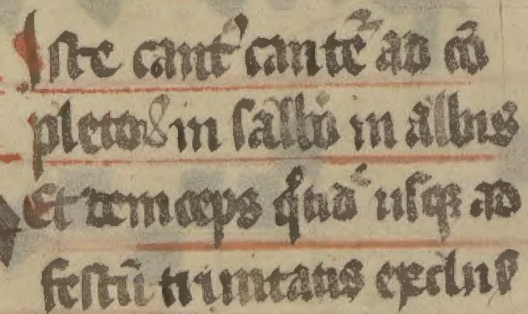 Iste cantꝰ cantet᷑ ad cō
pletoꝝ in sabbō in albis
Et deinceps usqꝫ ad
festū trinitatis